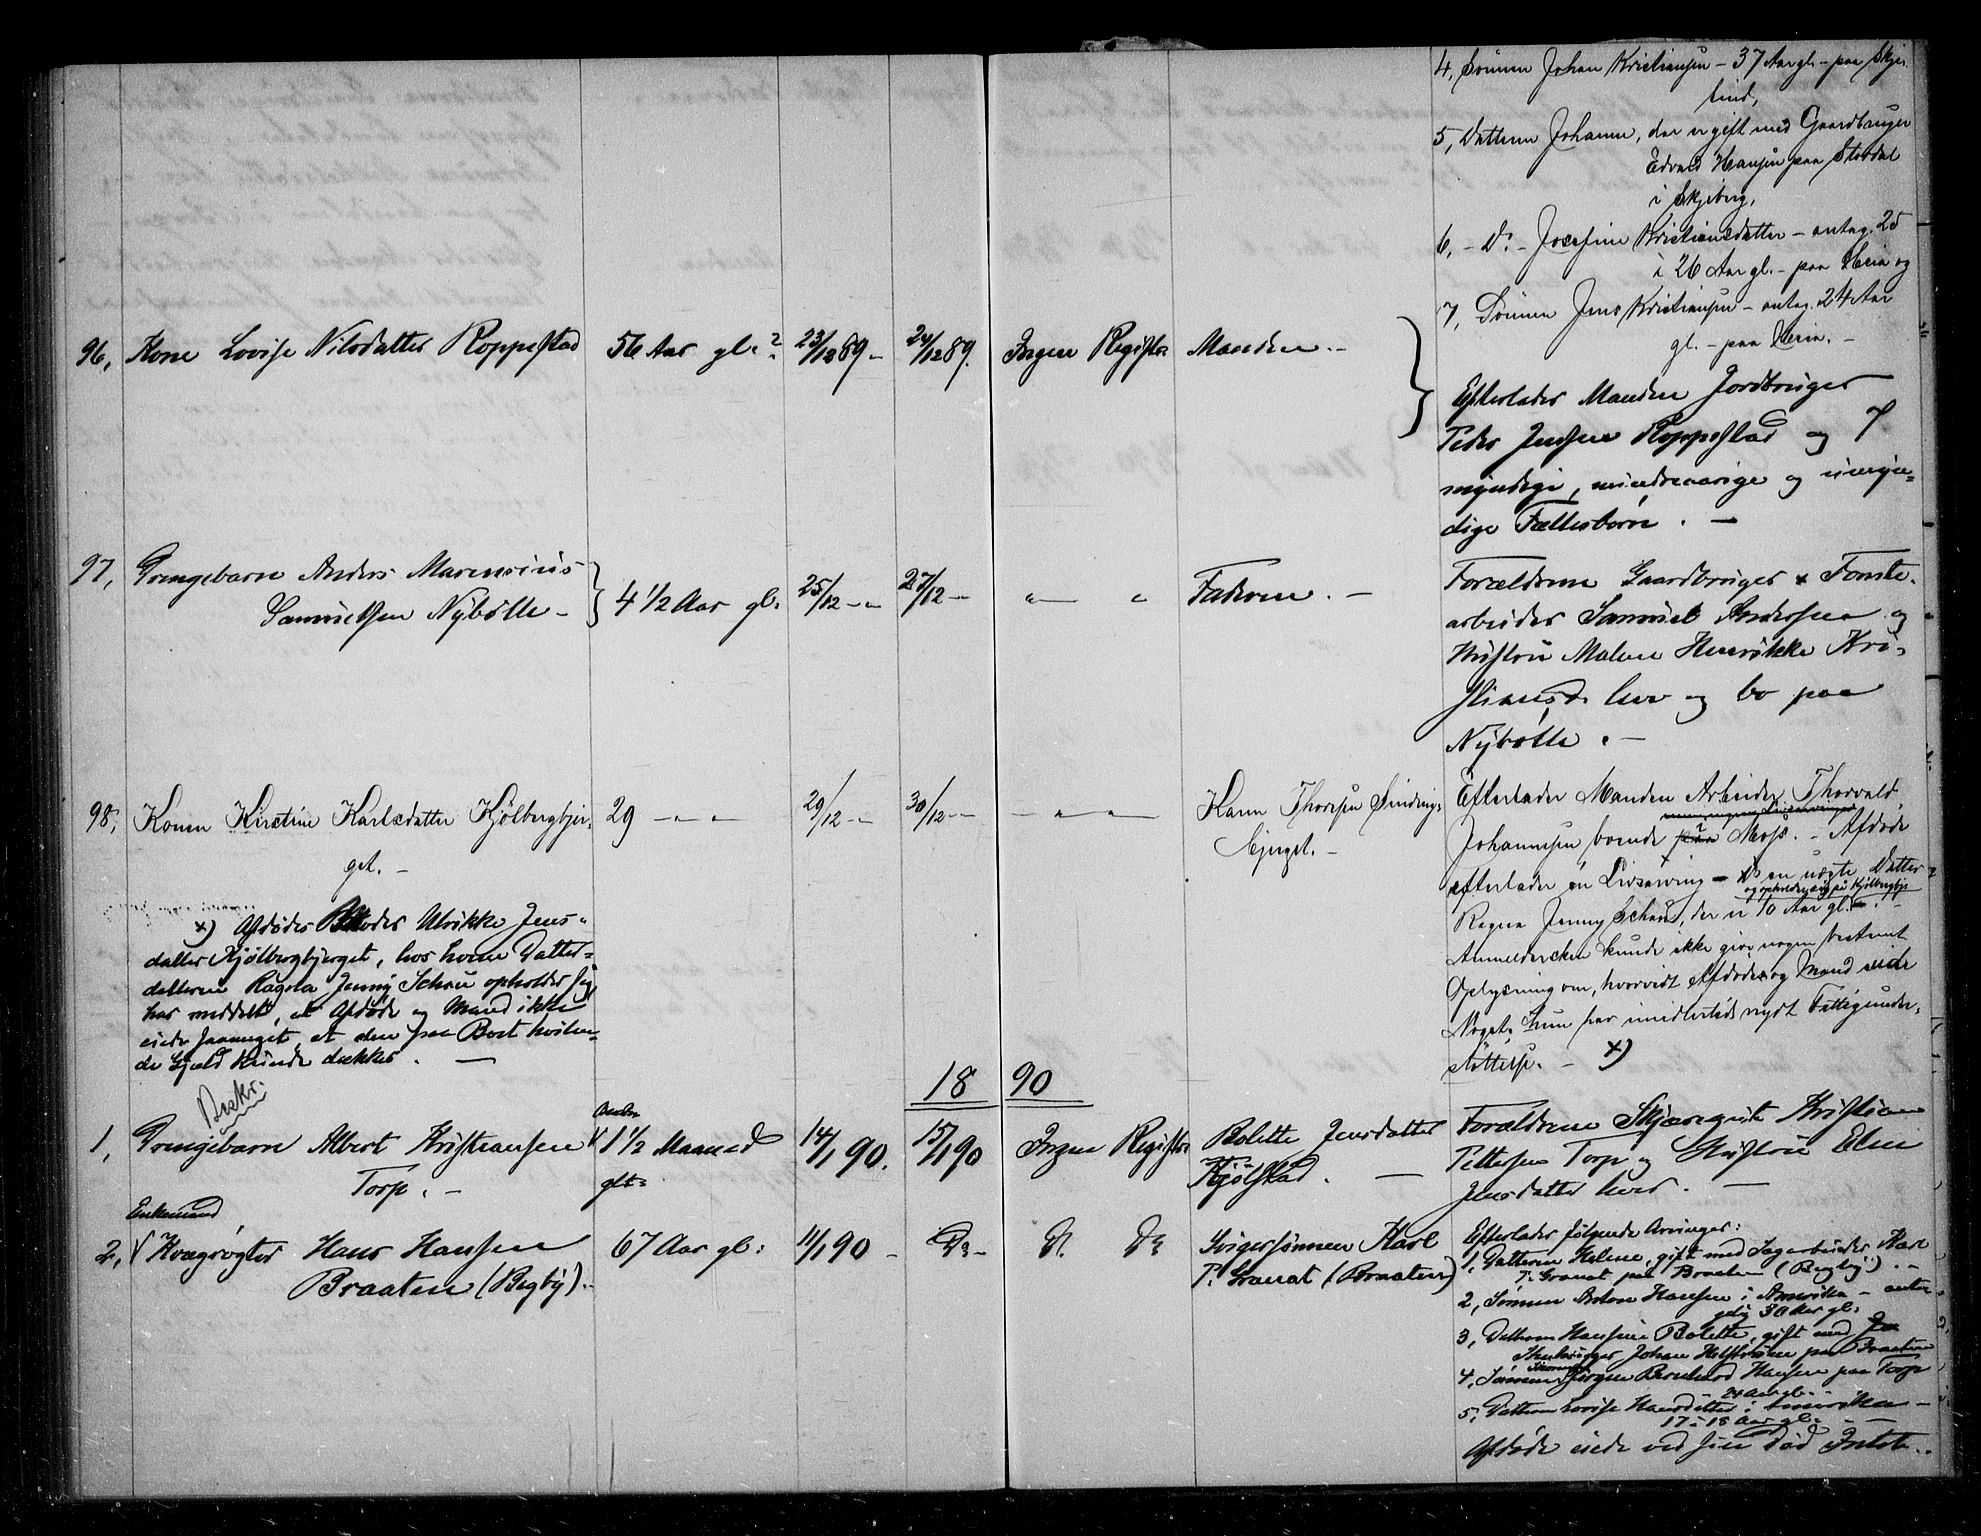 4, Sønnen Johan Kristiansen – 37 Aar gl. – paa Skje-
lind,
5, Datteren Johanne, der er gift med Gaardbruger
Edvard Hansen paa Stordal
i Skjeberg,
6, – Do. – Josefine Kristiansdatter – antag. 25
à 26 Aar gl. – paa Heria og
7, Sønnen Jens Kristiansen – antag. 24 Aar
gl. – paa Heria. –
96, Kone Lovise Nilsdatter Roppestad
56 Aar gl. ?
23/12 89 –
24/12 89.
Ingen Registr.
Manden. –
Efterlader Manden Jordbruger
Peder Jensen Roppestad og 7
myndige, mindreaarige og umyn-
dige Fællesbørn. –
97, Drengebarn Anders Marensius
Samuelsen Nybølle –
4 1/2 Aar gl.
25/12 – „
27/12 –
„ „
Faderen. –
Forældrene Gaardbruger & Tomte-
arbeider Samuel Andersen og
Hustru Malene Henrikke Kri-
stiansd. lever og bo paa
Nybølle. –
98, Konen Kirstine Karlsdatter Kjølbergbjer-
get. –
29 – „ – „
29/12 – „
30/12 – –
– „ – „ –
Karen Thoresen
bjerget. –
Efterlader Manden Arbeider Thorvald
Johannesen, boende paa i Moss. – Afdøde
efterlader en Livsarving – Do en uægte Datter
og opholder sig på Kjølbergbjer
Ragna Jenny Schou, der er 10 Aar gl. –
Anmeldersken kunde ikke give nogen bestemt
Oplysning om, hvorvidt Afdøde og Mand eiede
Noget; hun har imidlertid nydt Fattigunder-
støttelse. – x)
x) Afdødes Moder Ulrikke Jens-
datter Kjølbergbjerget, hos hvem Datter-
datteren Ragna Jenny Schou opholder sig
har meddelt, at Afdøde og Mand ikke
eiede saameget, at den paa Boet hvilen-
de Gjæld kunde dækkes. –
18 90
Beskr.
1, Drengebarn Albert Kristiansen
Torp. –
1 1/2 Maaned
glt.
14/1 90.
15/1 90
Ingen Registr.
Bolette Jensdatter
Kjølstad. –
Forældrene Skjærequist Kristian
Pettersen Torp og Hustru Elen
Jensdatter lever. –
Enkemand
2, Kvægrøgter Hans Hansen
Braaten (Begby). –
67 Aar gl.
11/1 90 –
Do –
Do Do
Svigersønnen Karl
T. Granat (Braaten)
Efterlader følgende Arvinger:
1, Datteren Helene, gift med Sagarbeider Karl
T. Granat paa Braaten (Begby). –
2, Sønnen Anton Hansen i Amerika – anta-
gelig 30 Aar gl.
3, Datteren Hansine Bolette, gift med
Johan paa Braaten
4, Sønnen Jørgen Bernhard Hansen paa Torp
24 Aar gl. –
5, Datteren Lovise Hansdatter i Amerika –
17 à 18 Aar gl. –
Afdøde eiede ved sin Død Intet. –